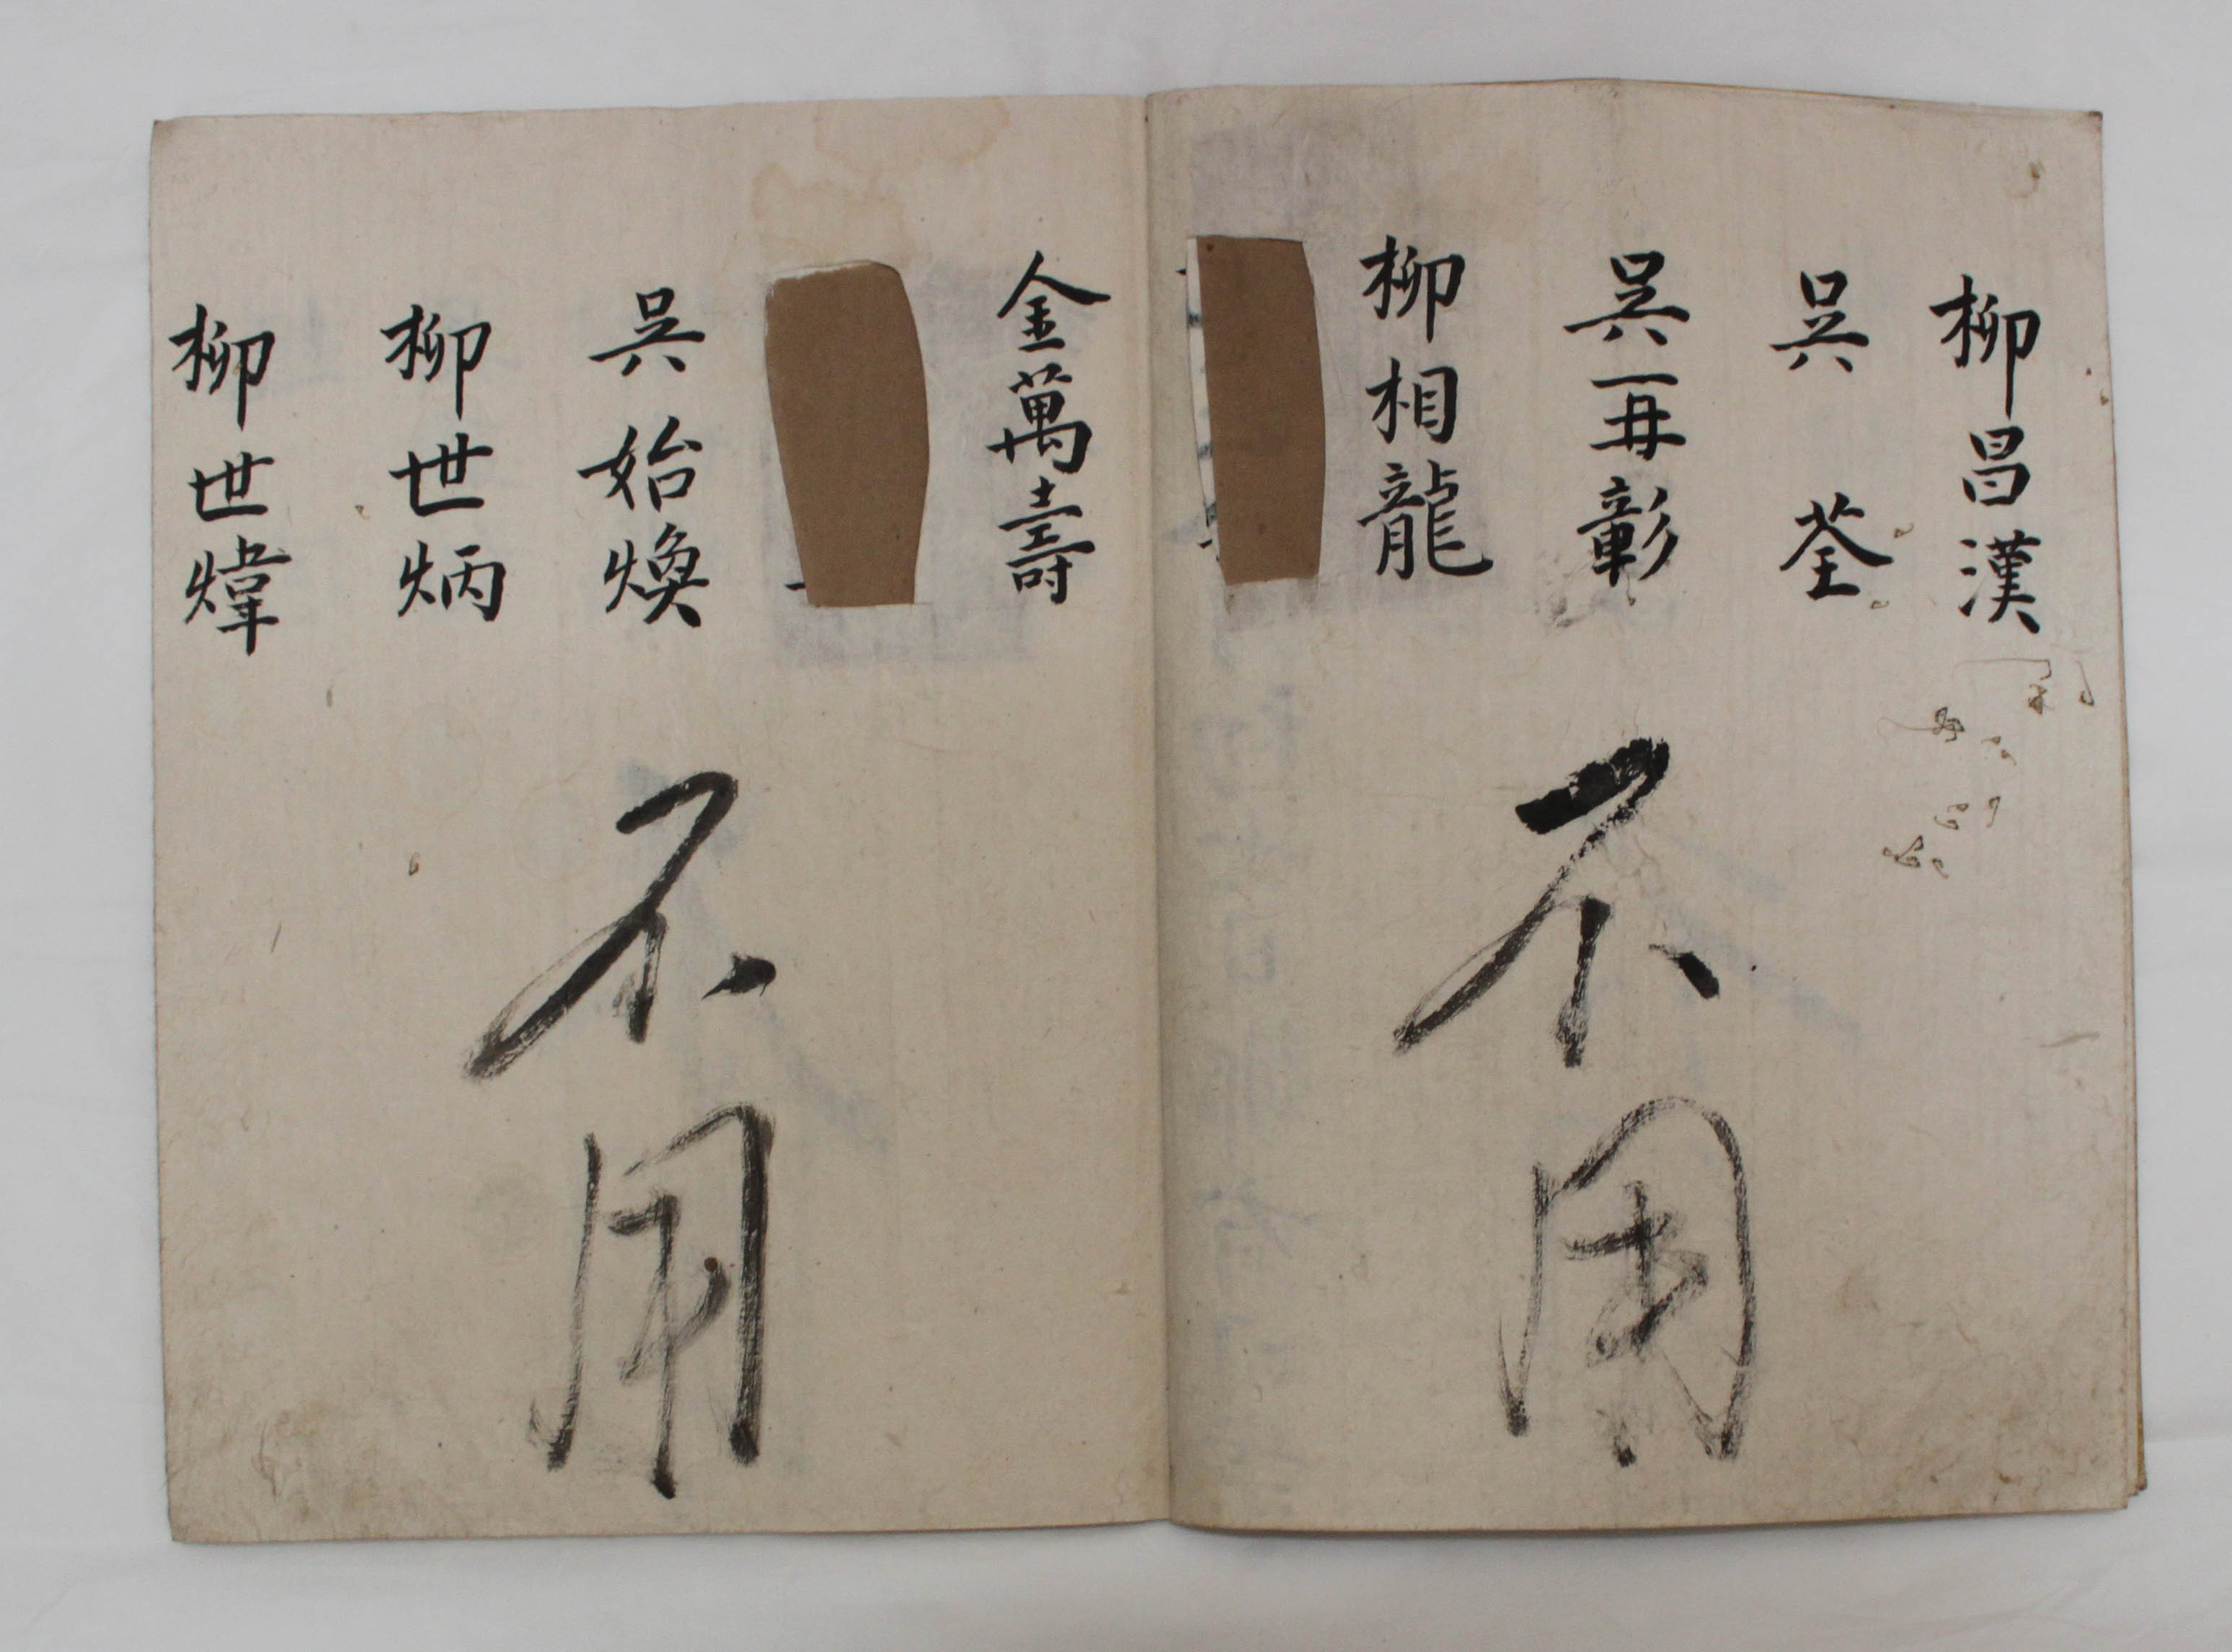 柳昌漢
吳 荃
吳再彰
柳相龍
不用
金萬壽
吳始煥
柳世炳
柳世煒
不用